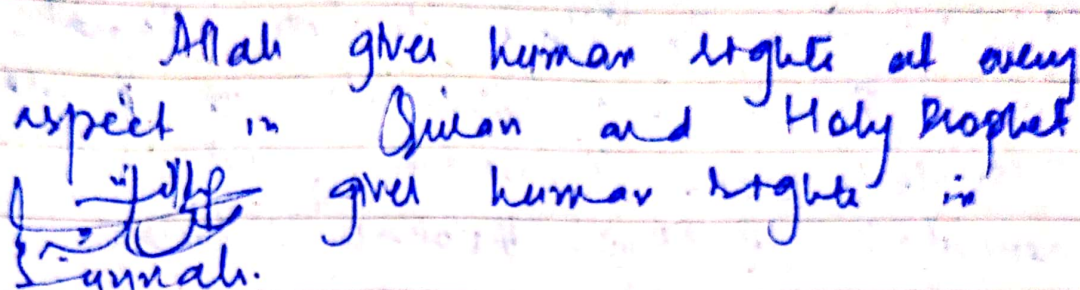 Allah gives human rights at every
aspect in Quran and Holy Prophet
صلی اللہ علیہ وسلم gives human rights in
Sunnah.